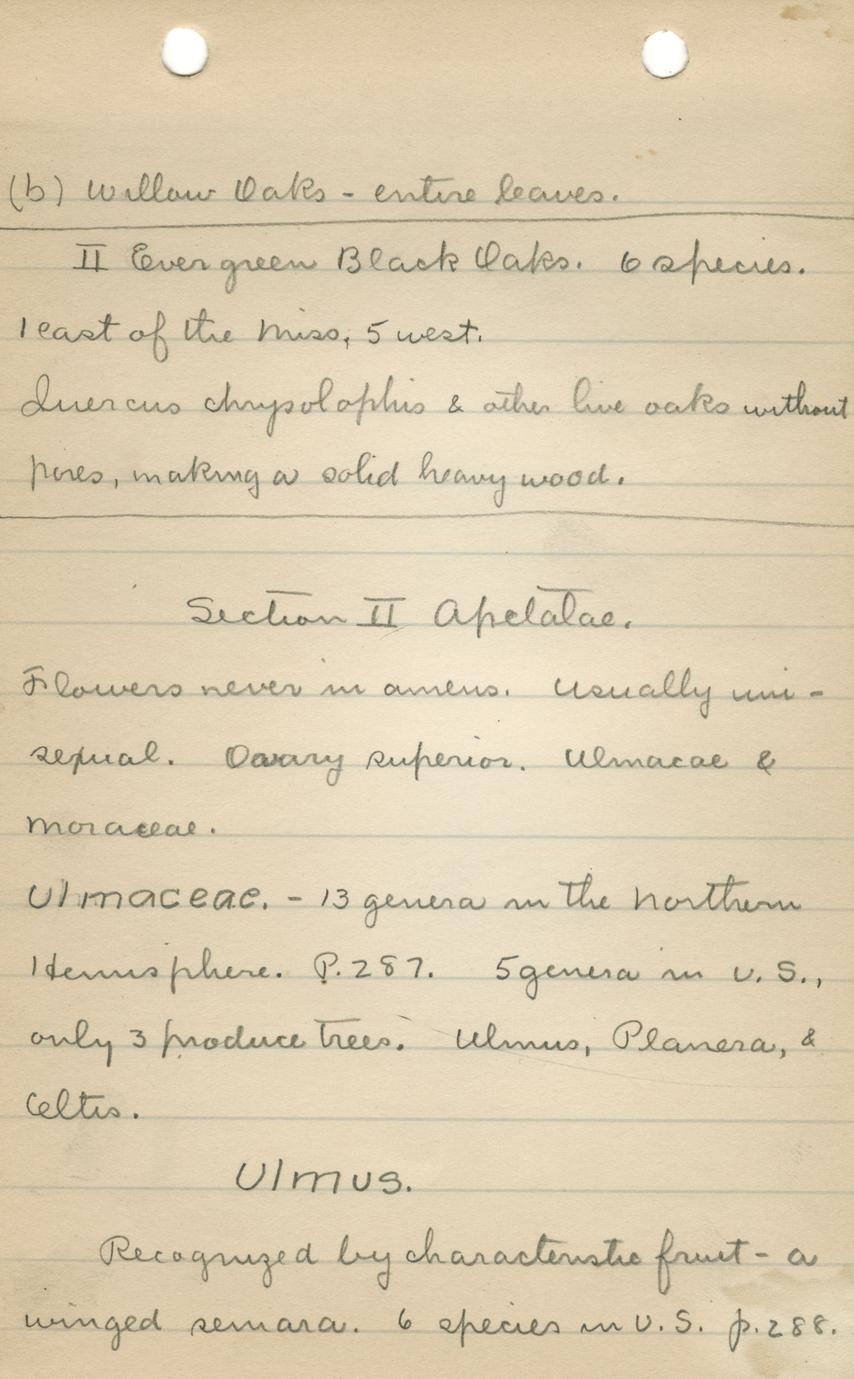 (b) Willow Oaks - entire leaves.
II Evergreen Black Oaks. 6 species.
1 east of the Miss, 5 west.
Quercus chrysolophis & other live oaks without
pores, making a solid heavy wood.
Section II Apelatae.
Flowers never in amens. Usually uni-
sexual. Ovary superior. Ulmacae &
Moraceae.
Ulmaceae. - 13 genera in the Northern
Hemisphere. P. 287. 5 genera in U.S.,
only 3 produce trees. Ulmus, Planera, &
Celtis.
Ulmus.
Recognized by characteristic fruit - a
winged semara. 6 species in U.S. p. 288.